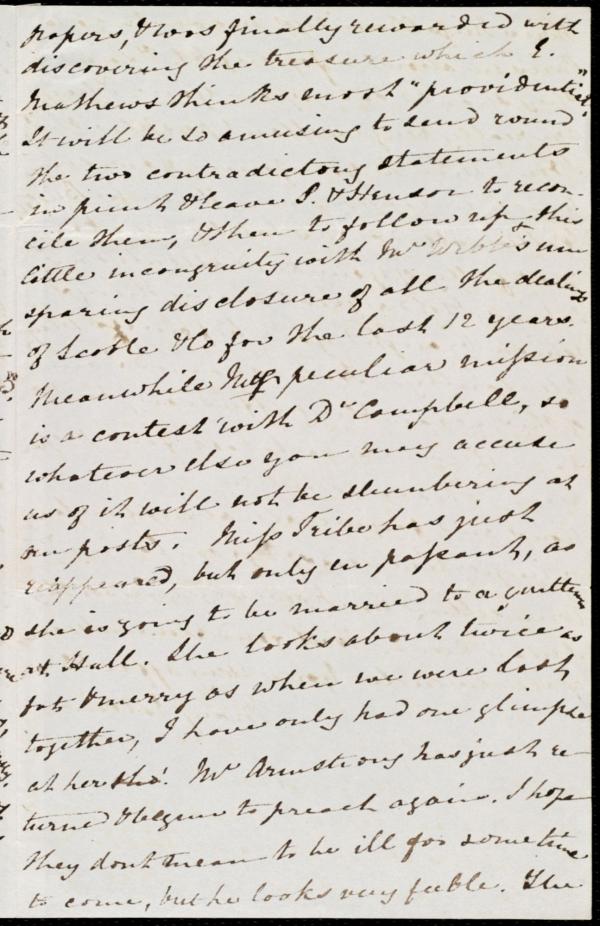 papers, & was finally rewarded with
discovering the treasure which E.
Mathews thinks most "providential".
It will be so amusing to send round
the two contradictory statements
in print & leave P. & Henson to recon-
cile them, & then to follow up this
little incongruity with Mr Webb's un
sparing disclosure of all the dealings
of Scoble & Co for the last 12 years.
Meanwhile peculiar mission
is a contest with Dr Campbell, so
whatever else you may accuse
us of it will not be slumbering at
our posts. Miss Tribe has just
reappeared, but only en passant, as
she is going to be married to a gentleman
at Hull. She looks about twice as
fat & merry as when we were last
together, I have only had one glimpse
at her tho'. Mr Armstrong has just re-
turned & begun to preach again. I hope
they dont mean to be ill for some time
to come, but he looks very feeble. The